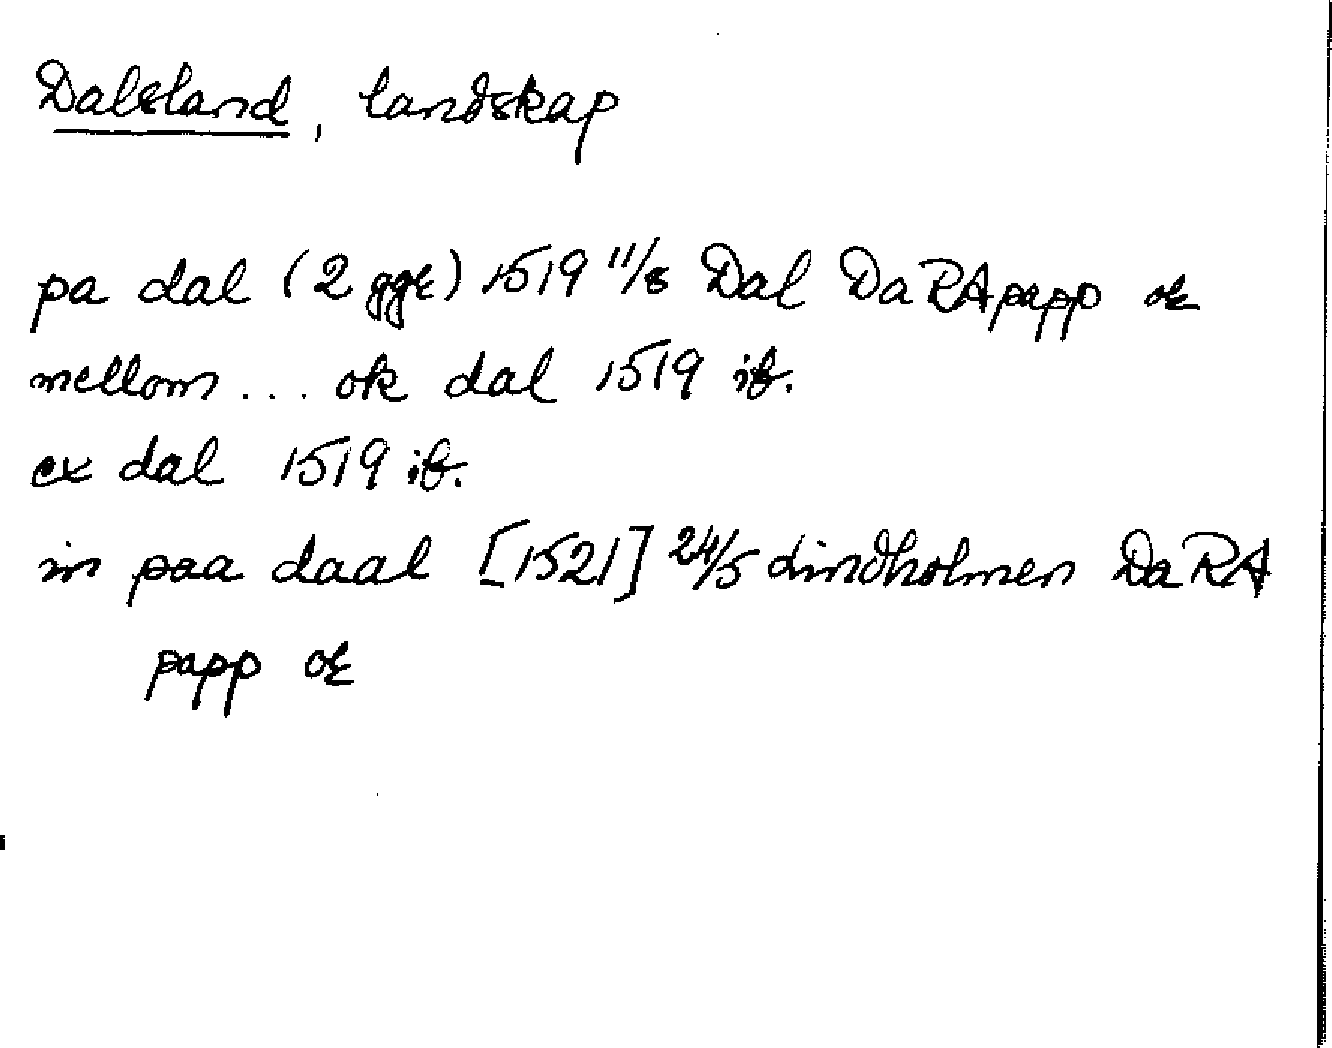 Dalsland, landskap
pa dal (2 ggr) 1519 11/8 Dal DaRA papp or
mellom ... ok dal 1519 ib.
ex dal 1519 ib.
in paa daal [1521] 24/5 Lindholmen DaRA
papp or